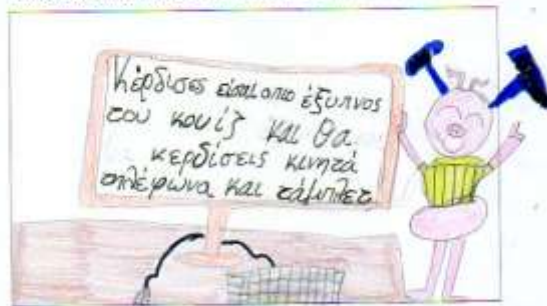 Κέρδισες είσαι ο πιο έξυπνος
του κουίζ και θα
κερδίσεις κινητά
τηλέφωνα και τάμπλετ